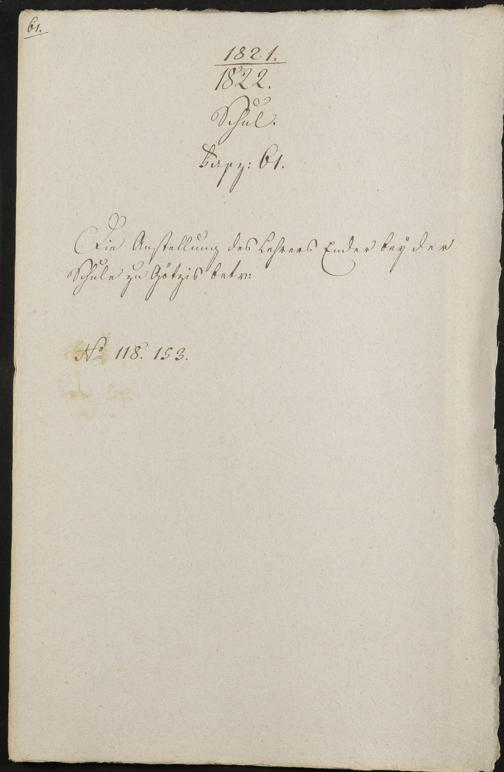 61.
1821.
1822.
Schul.
Fasz: 61.
Die Anstellung des Lehrers Ender bey der
Schule zu Götzis betr:
No 118. 153.